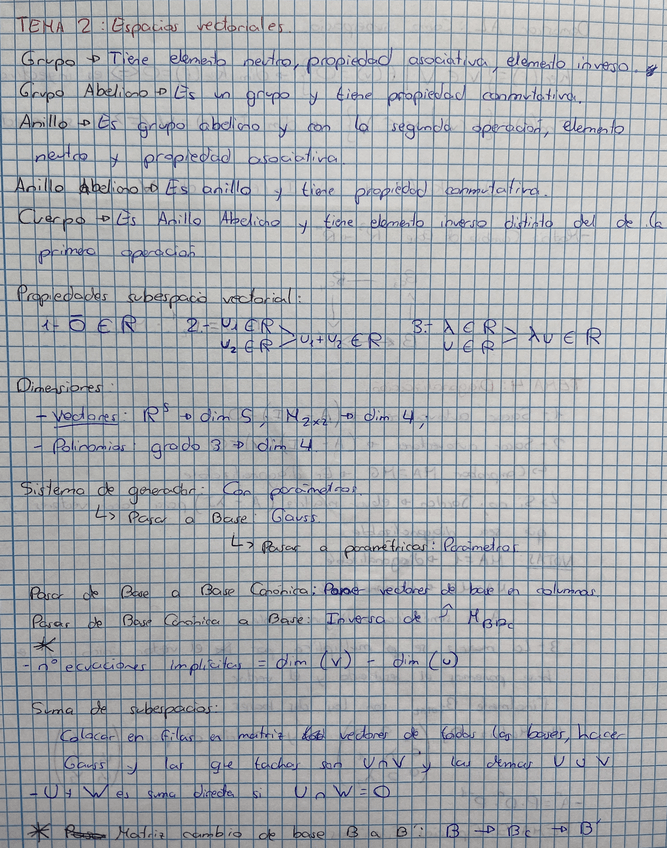 TEMA 2: Espacios vectoriales.
Grupo → Tiene elemento neutro, propiedad asociativa, elemento inverso.
Grupo Abeliano → Es un grupo y tiene propiedad conmutativa.
Anillo → Es grupo abeliano y con la segunda operación, elemento
neutro y propiedad asociativa.
Anillo Abeliano → Es anillo y tiene propiedad conmutativa.
Cuerpo → Es Anillo Abeliano y tiene elemento inverso distinto del de la
primera operación
Propiedades subespacio vectorial:
1- O̅ ∈ R 2.- U₁ ∈ R U₂ ∈ R > U₁+U₂ ∈ R 3- λ ∈ R U ∈ R > λU ∈ R
Dimensiones:
- Vectores: R⁵ → dim 5; M₂ₓ₂ → dim 4;
- Polinomios: grado 3 → dim 4.
Sistema de generador: Con parámetros.
↳ Pasar a Base: Gauss.
↳ Pasar a paramétricas: Parámetros
Pasar de Base a Base Canónica: vectores de base en columnas.
Pasar de Base Canónica a Base: Inversa de ↑ M_BBc
*
- nº ecuaciones implícitas = dim (V) - dim (U)
Suma de subespacios:
Colocar en filas en matriz vectores de todas las bases, hacer
Gauss y las que tachas son U∩V y las demas U∪V
- U + W es suma directa si U∩W=0
* Matriz cambio de base B a B': B → Bc → B'